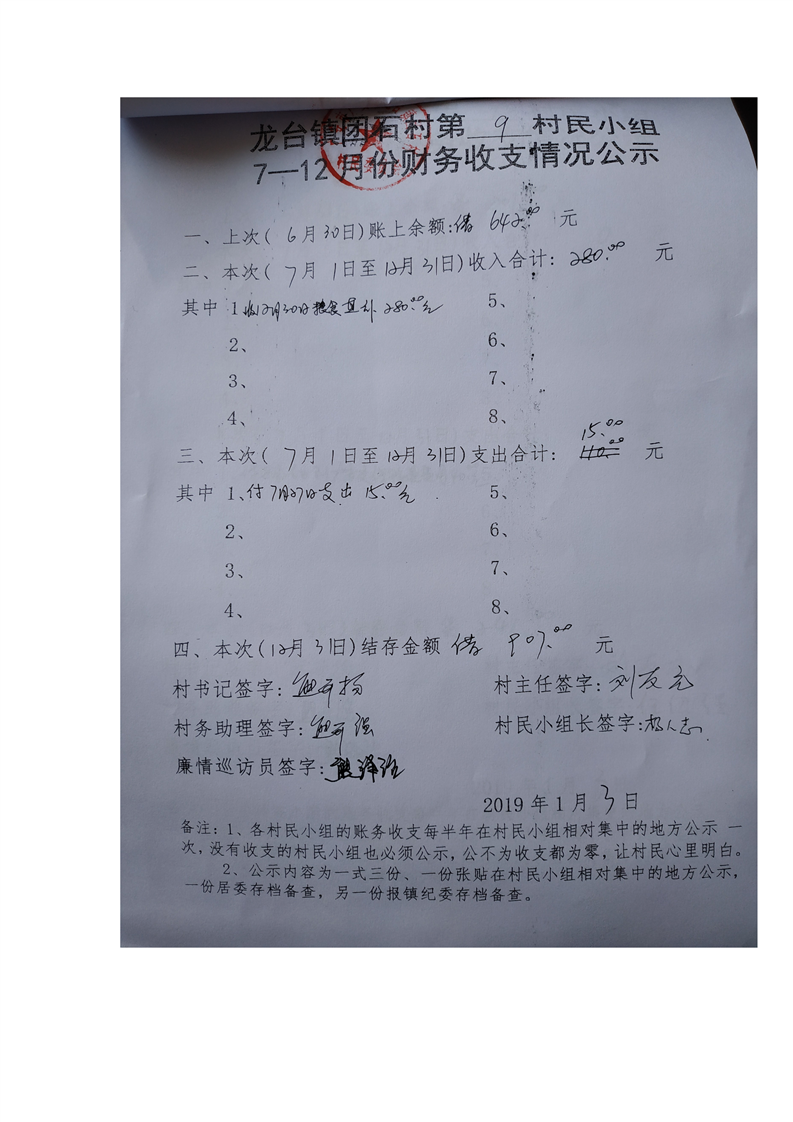 龙台镇团石村第 9 村民小组
7—12月份财务收支情况公示
一、上次( 6月30日)账上余额:借 642.00 元
二、本次( 7月 1日至12月31日)收入合计: 280.00 元
其中 1、收12月30日粮食直补 280.00元 5、
2、 6、
3、 7、
4、 8、
15.00
三、本次( 7月 1日至12月31日)支出合计: 110.00 元
其中 1、付7月27日支出 15.00元 5、
2、 6、
3、 7、
4、 8、
四、本次(12月31日)结存金额 借 907.00 元
村书记签字: 村主任签字:刘友元
村务助理签字: 村民小组长签字:
廉情巡访员签字:熊泽治
2019年1月3日
备注:1、各村民小组的账务收支每半年在村民小组相对集中的地方公示 一
次,没有收支的村民小组也必须公示,公不为收支都为零,让村民心里明白。
2、公示内容为一式三份、一份张贴在村民小组相对集中的地方公示,
一份居委存档备查,另一份报镇纪委存档备查。